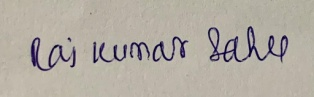 Raj Kumar Sahu